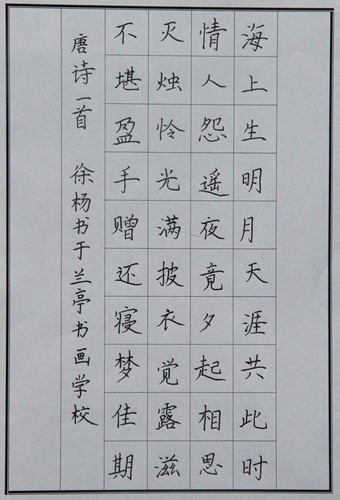 海上生明月天涯共此时
情人怨遥夜竟夕起相思
灭烛怜光满披衣觉露滋
不堪盈手赠还寝梦佳期
唐诗一首 徐杨书于兰亭书画学校